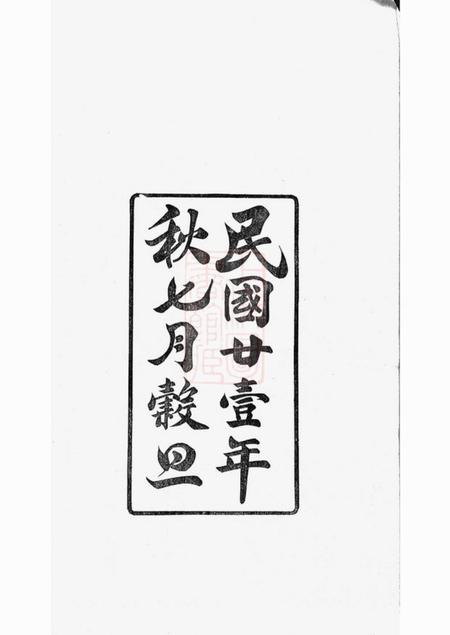 民國廿壹年
秋七月穀旦